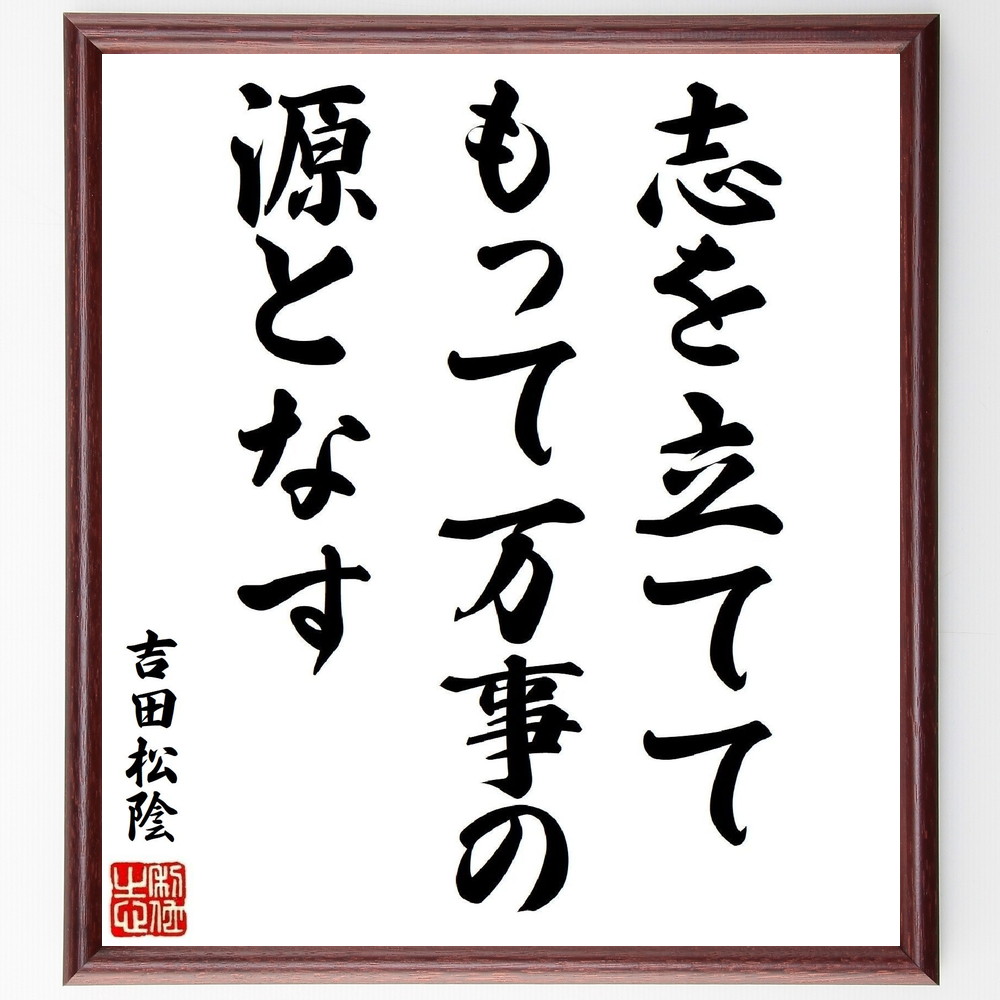 志を立てて
もって万事の
源となす
吉田松陰